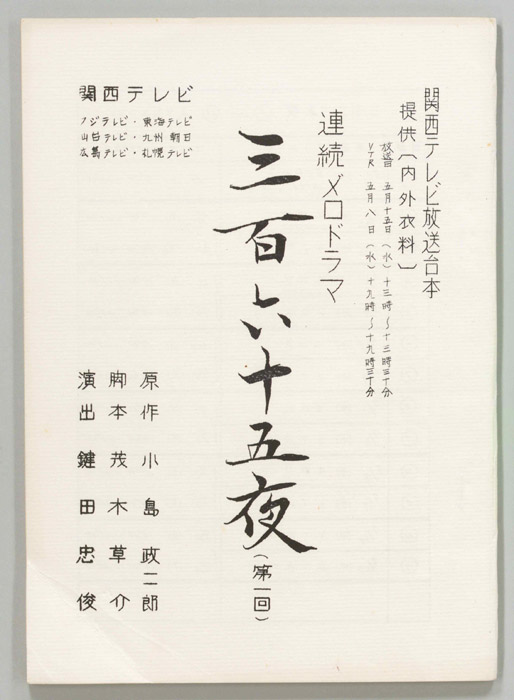 関西テレビ放送台本
提供〔内外衣料〕
放送日 五月十五日(水)十三時~十三時三十分
VTR 五月八日(水)十九時~十九時三十分
連続メロドラマ
三百六十五夜(第一回)
原作 小島政二郎
脚本 茂木草介
演出 鍵田忠俊
関西テレビ
フジテレビ・東海テレビ
山古テレビ・九州朝日
広島テレビ・札幌テレビ